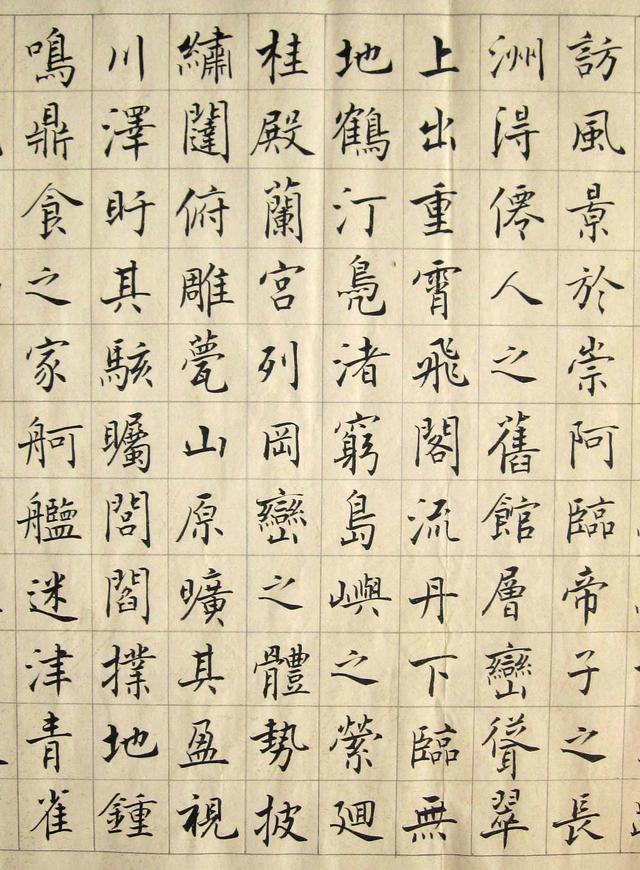 訪風景於崇阿臨帝子之長
洲淂僊人之舊館層巒聳翠
上出重霄飛閣流丹下臨無
地鶴汀鳧渚窮島嶼之縈廻
桂殿蘭宮列岡巒之體勢披
繡闥俯雕甍山原曠其盈視
川澤盱其駭矚閭閻撲地鍾
鳴鼎食之家舸艦迷津青雀